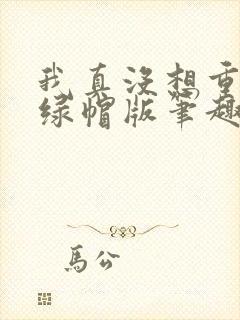 我真没想重
绿帽版笔趣
馬公